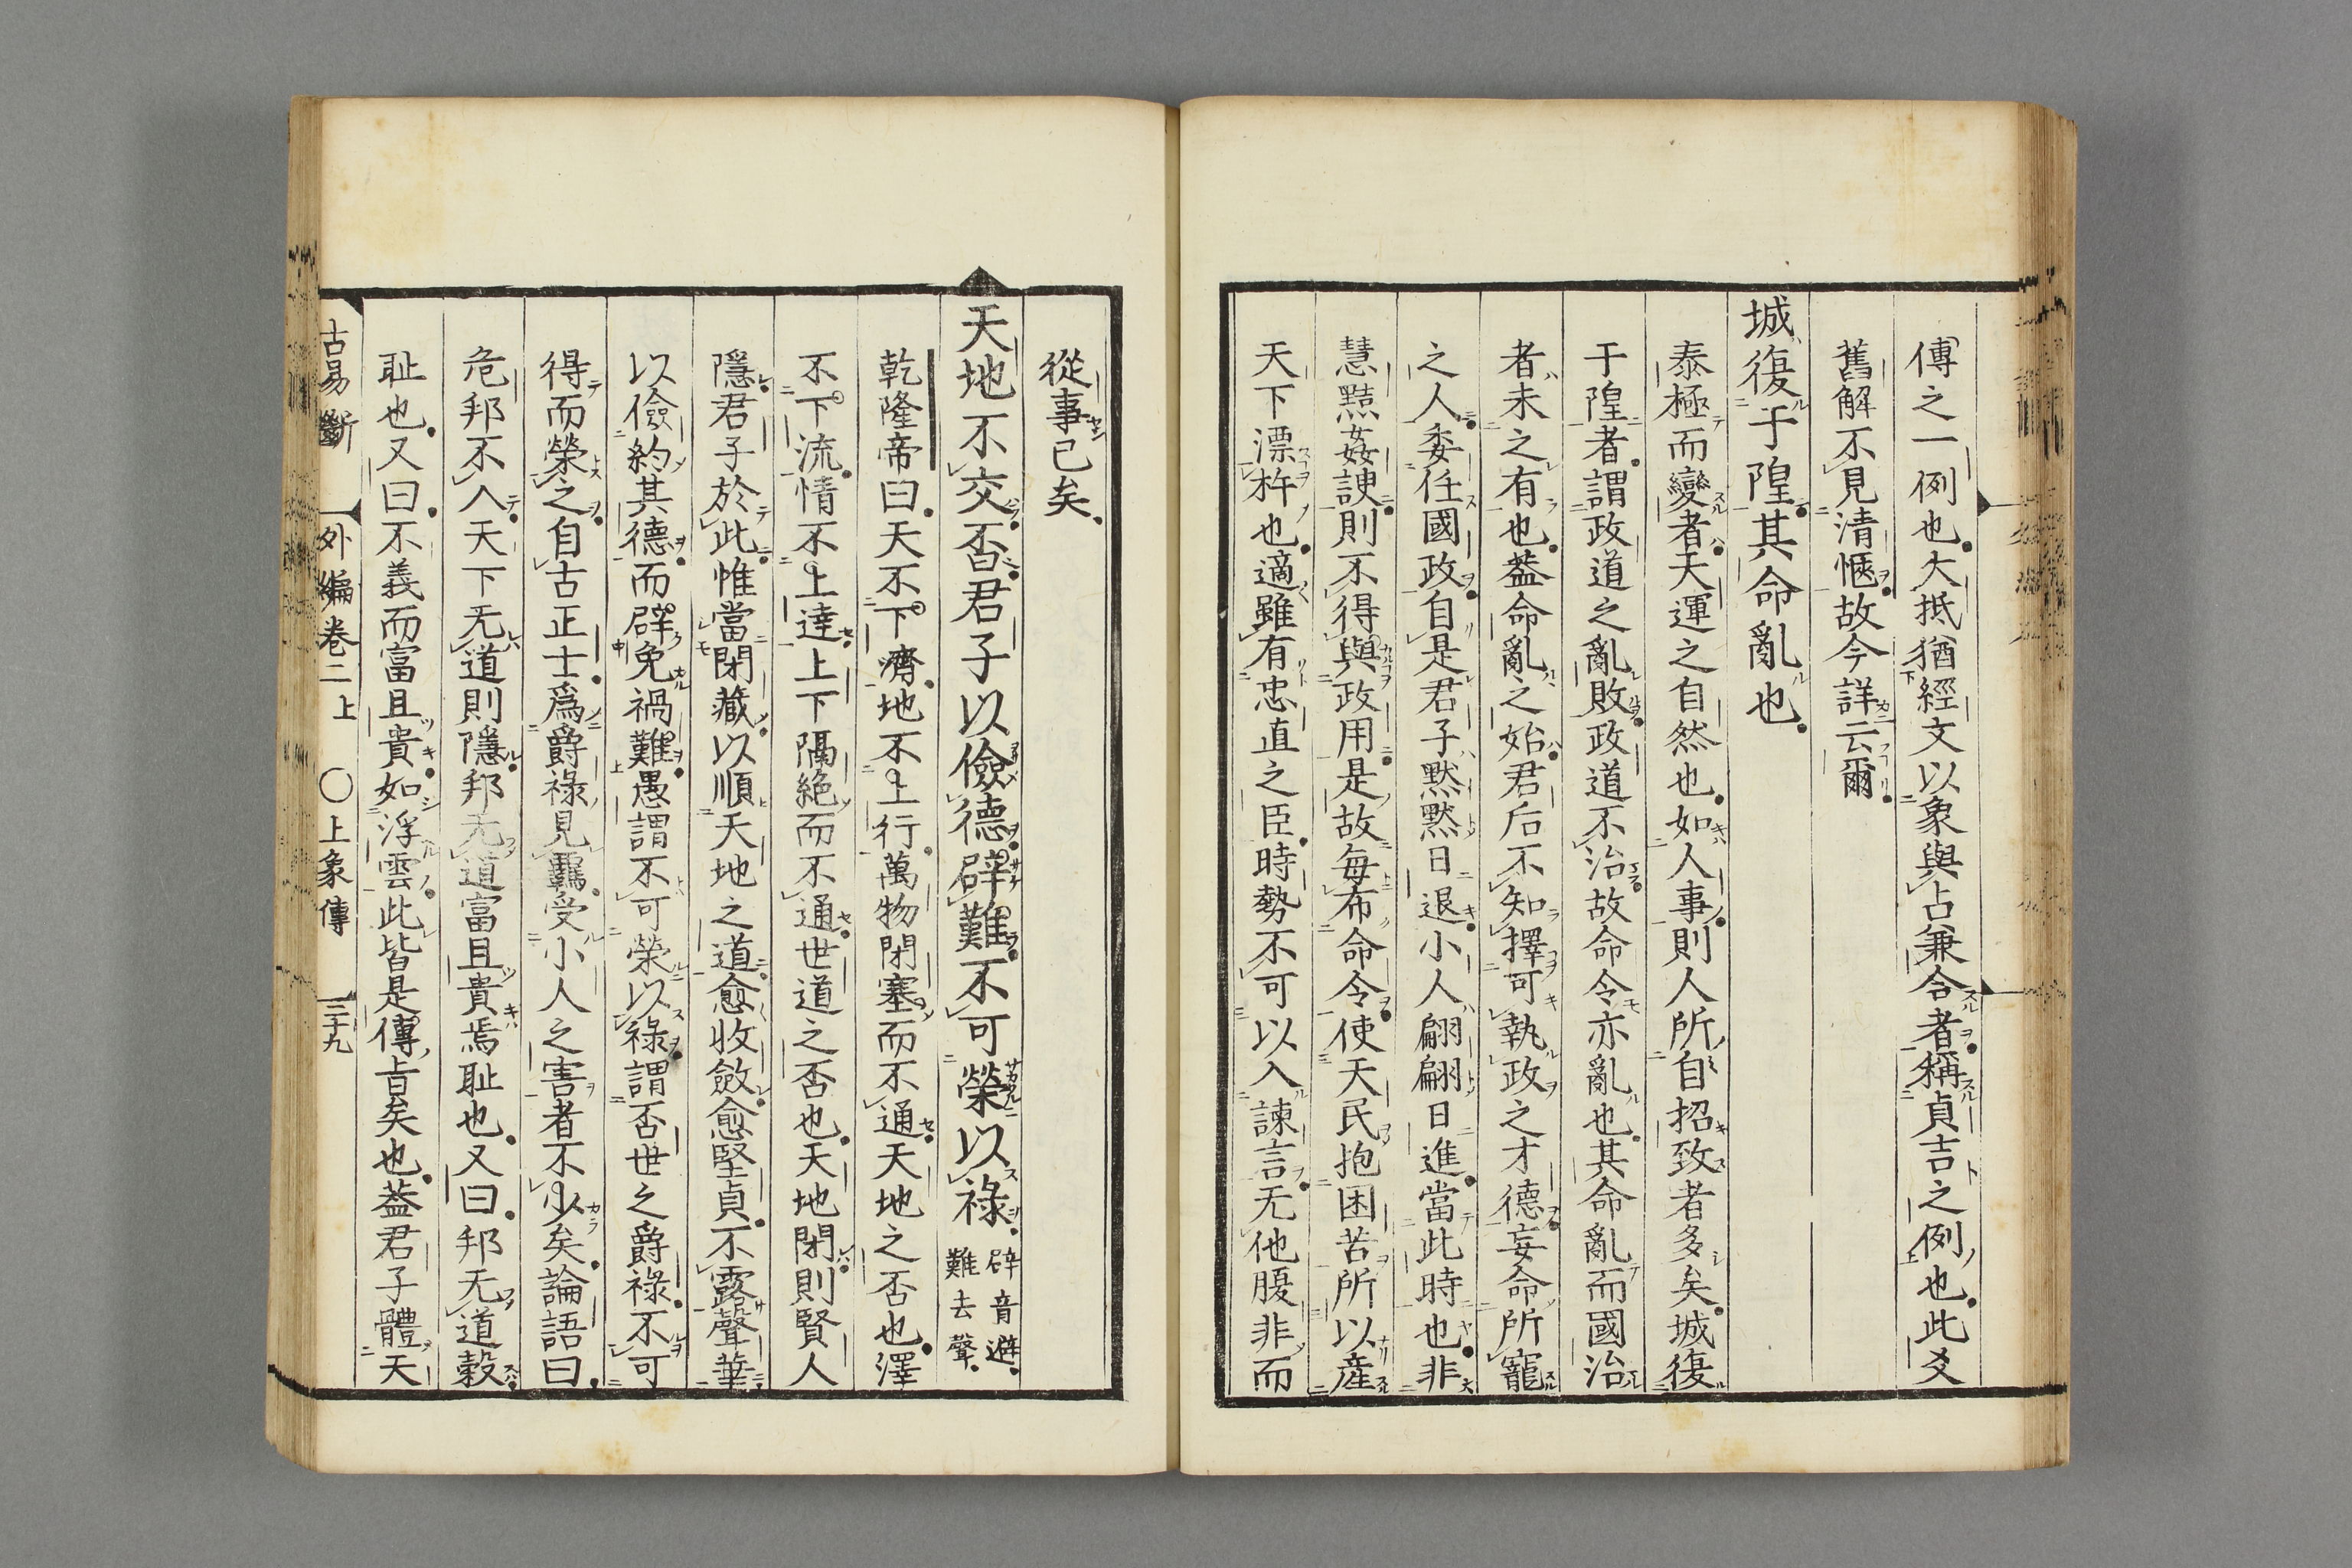 傳之一例也大抵猶經文以象與占兼合者稱貞吉之例也此爻
舊解不見清愜故今詳云爾
城復于隍其命亂也
泰極而變者天運之自然也如人事則人所自招致者多矣城復
于隍者謂政道之亂敗政道不治故命令亦亂也其命亂而國治
者未之有也葢命亂之始君后不知擇可執政之才德妄命所寵
之人委任國政自是君子黙黙日退小人翩翩日進當此時也非
慧黠姦諛則不得與政用是故每布命令使天民抱困苦所以産
天下漂杵也適雖有忠直之臣時勢不可以入諫言无他腹非而
從事已矣
天地不交否君子以儉德辟難不可榮以祿
辟音避
難去聲
乾隆帝曰天不下濟地不上行萬物閉塞而不通天地之否也澤
不下流情不上達上下隔絶而不通世道之否也天地閉則賢人
隱君子於此惟當閉藏以順天地之道愈收斂愈堅貞不露聲華
以儉約其德而辟免禍難愚謂不可榮以祿謂否世之爵祿不可
得而榮之自古正士爲爵祿見羈受小人之害者不少矣論語曰
危邦不入天下无道則隱邦无道富且貴焉耻也又曰邦无道穀
耻也又曰不義而富且貴如浮雲此皆是傳旨矣也葢君子體天
古易斷 外編卷二上 〇上象傳 三十九